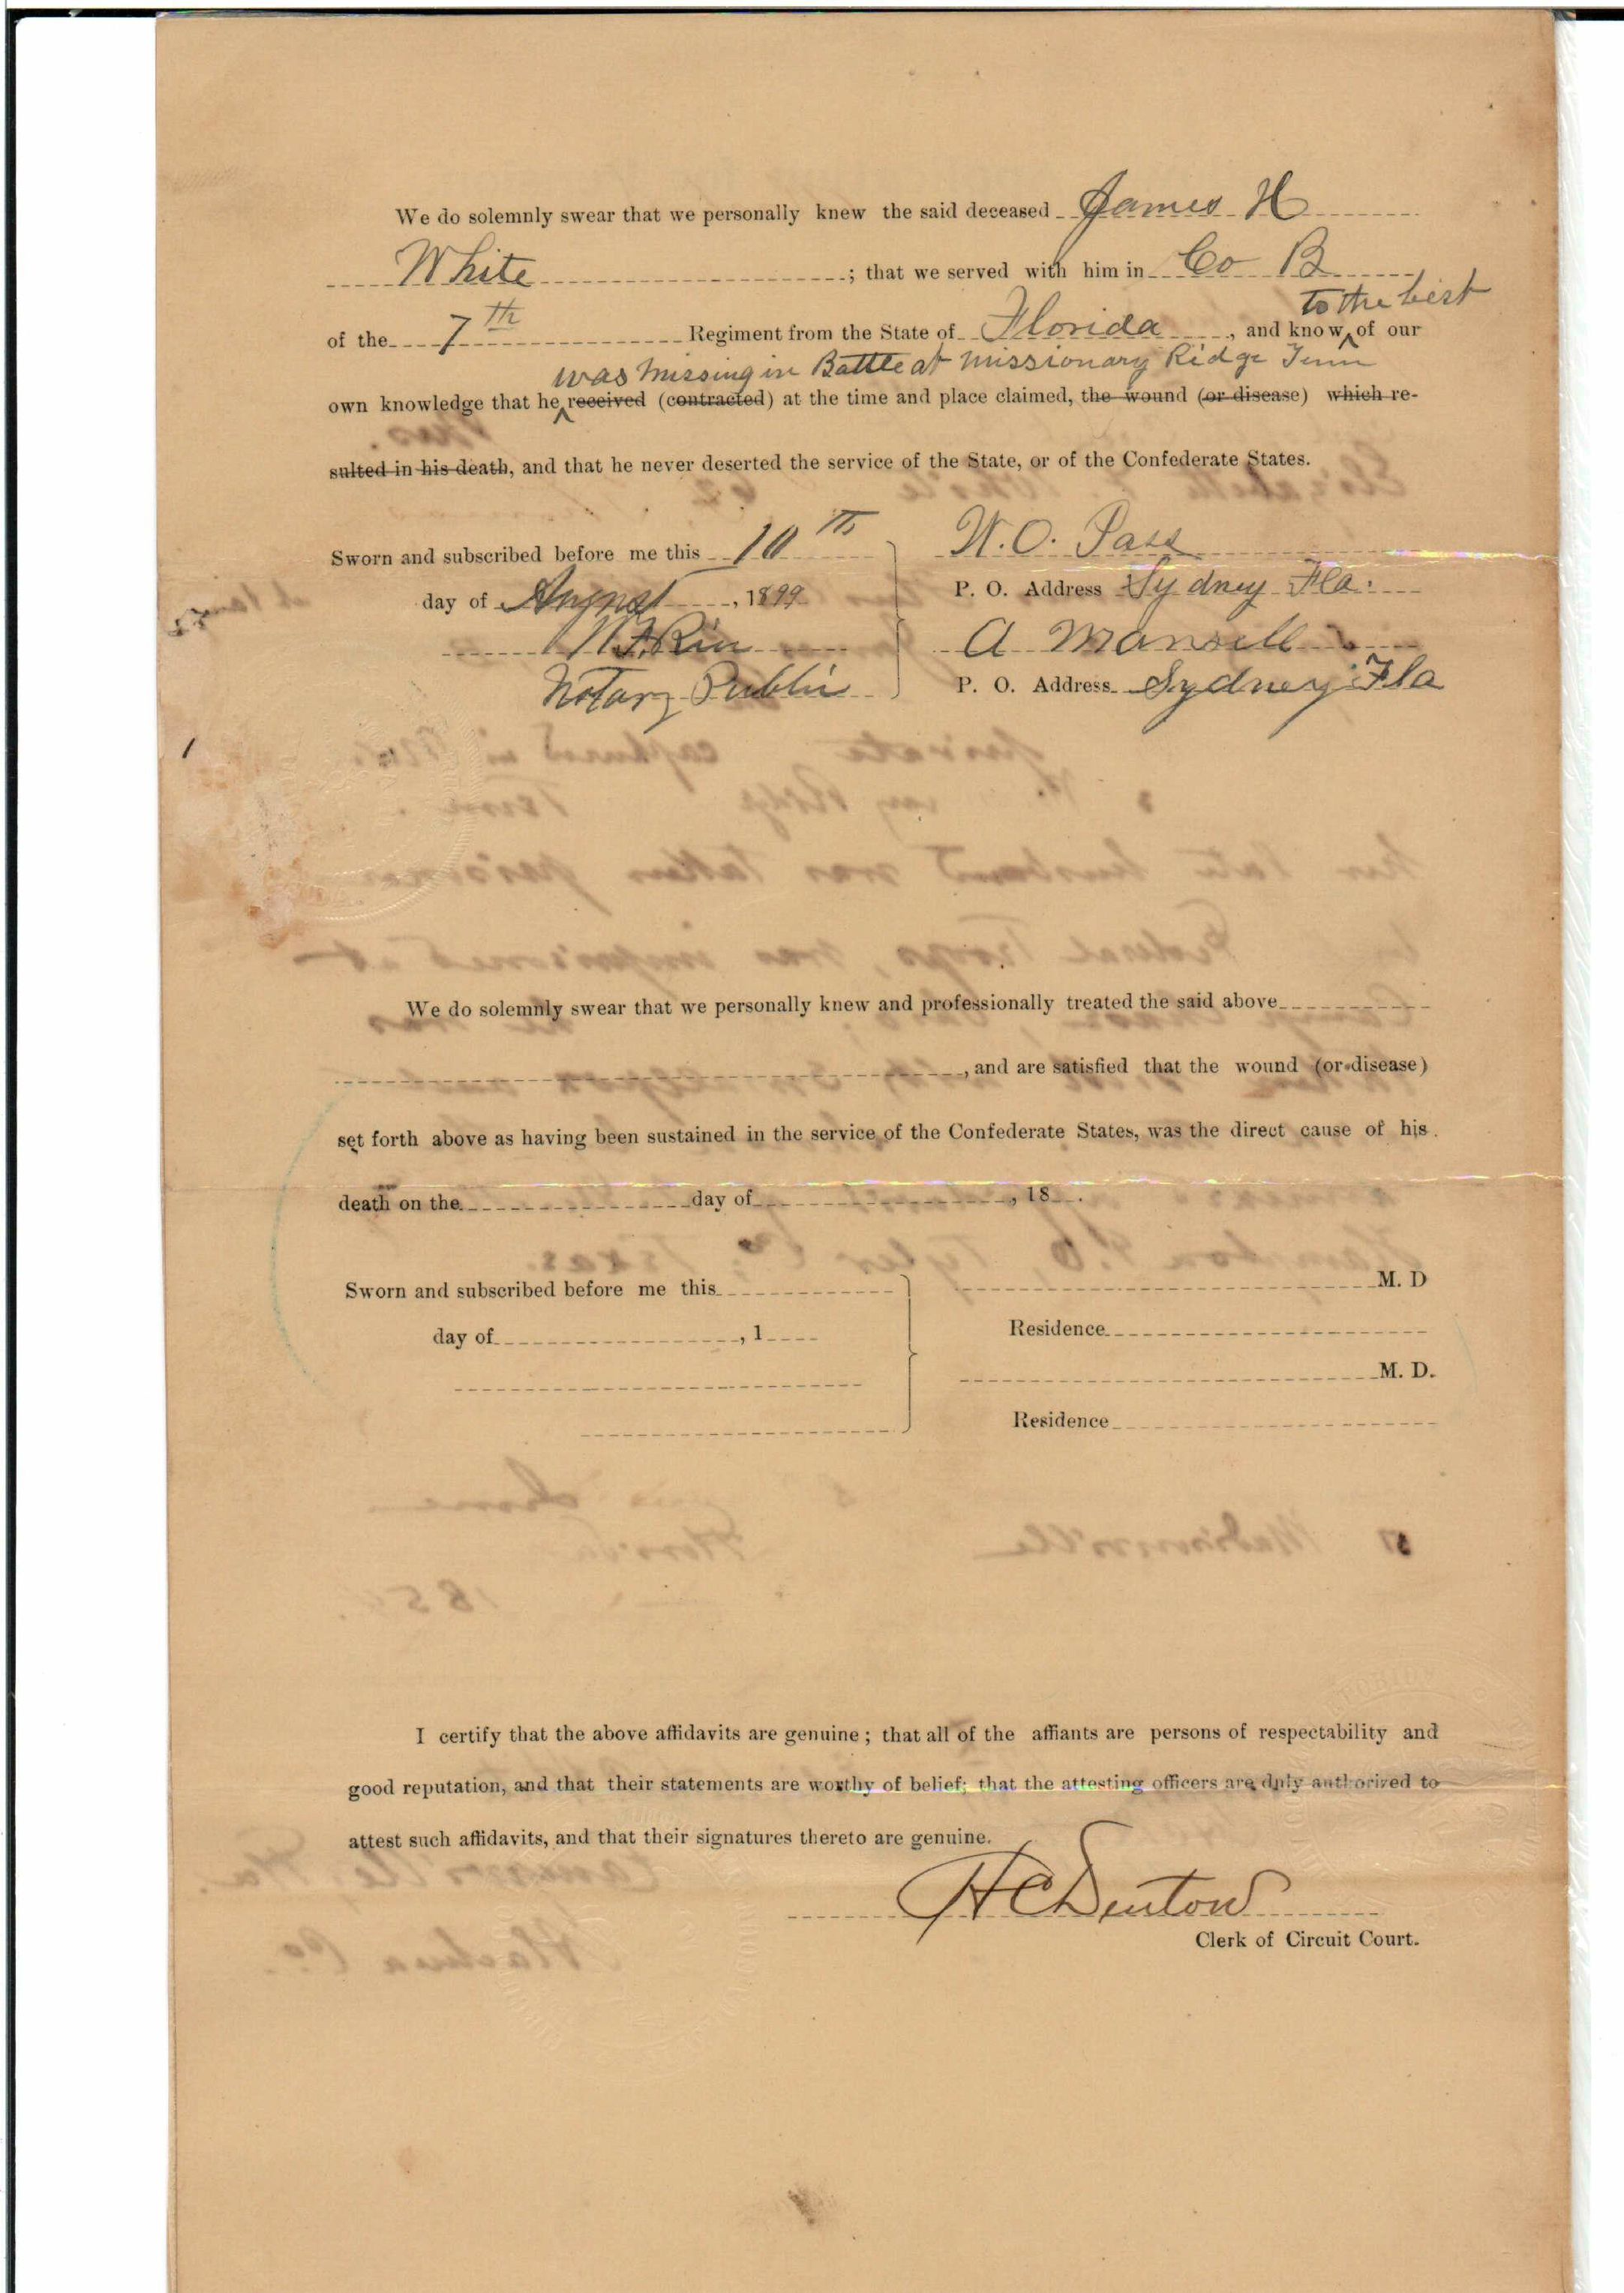 We do solemnly swear that we personally knew the said deceased James H
White ; that we served with him in Co B
to the best
of the 7th Regiment from the State of Florida, and know of our
was missing in Battle at Missionary Ridge Tenn
own knowledge that he received (contracted) at the time and place claimed, the wound (or disease) which re-
sulted in his death, and that he never deserted the service of the State, or of the Confederate States.
Sworn and subscribed before me this 10th
W. O. Pass
day of August, 1899
P. O. Address Sydney Fla.
A Mansell
Notary Public
P. O. Address Sydney Fla
We do solemnly swear that we personally knew and professionally treated the said above
, and are satisfied that the wound (or disease)
set forth above as having been sustained in the service of the Confederate States, was the direct cause of his
death on the day of , 18 .
Sworn and subscribed before me this
M. D
day of , 1
Residence
M. D.
Residence
I certify that the above affidavits are genuine; that all of the affiants are persons of respectability and
good reputation, and that their statements are worthy of belief; that the attesting officers are duly authorized to
attest such affidavits, and that their signatures thereto are genuine.
H C Denton
Clerk of Circuit Court.